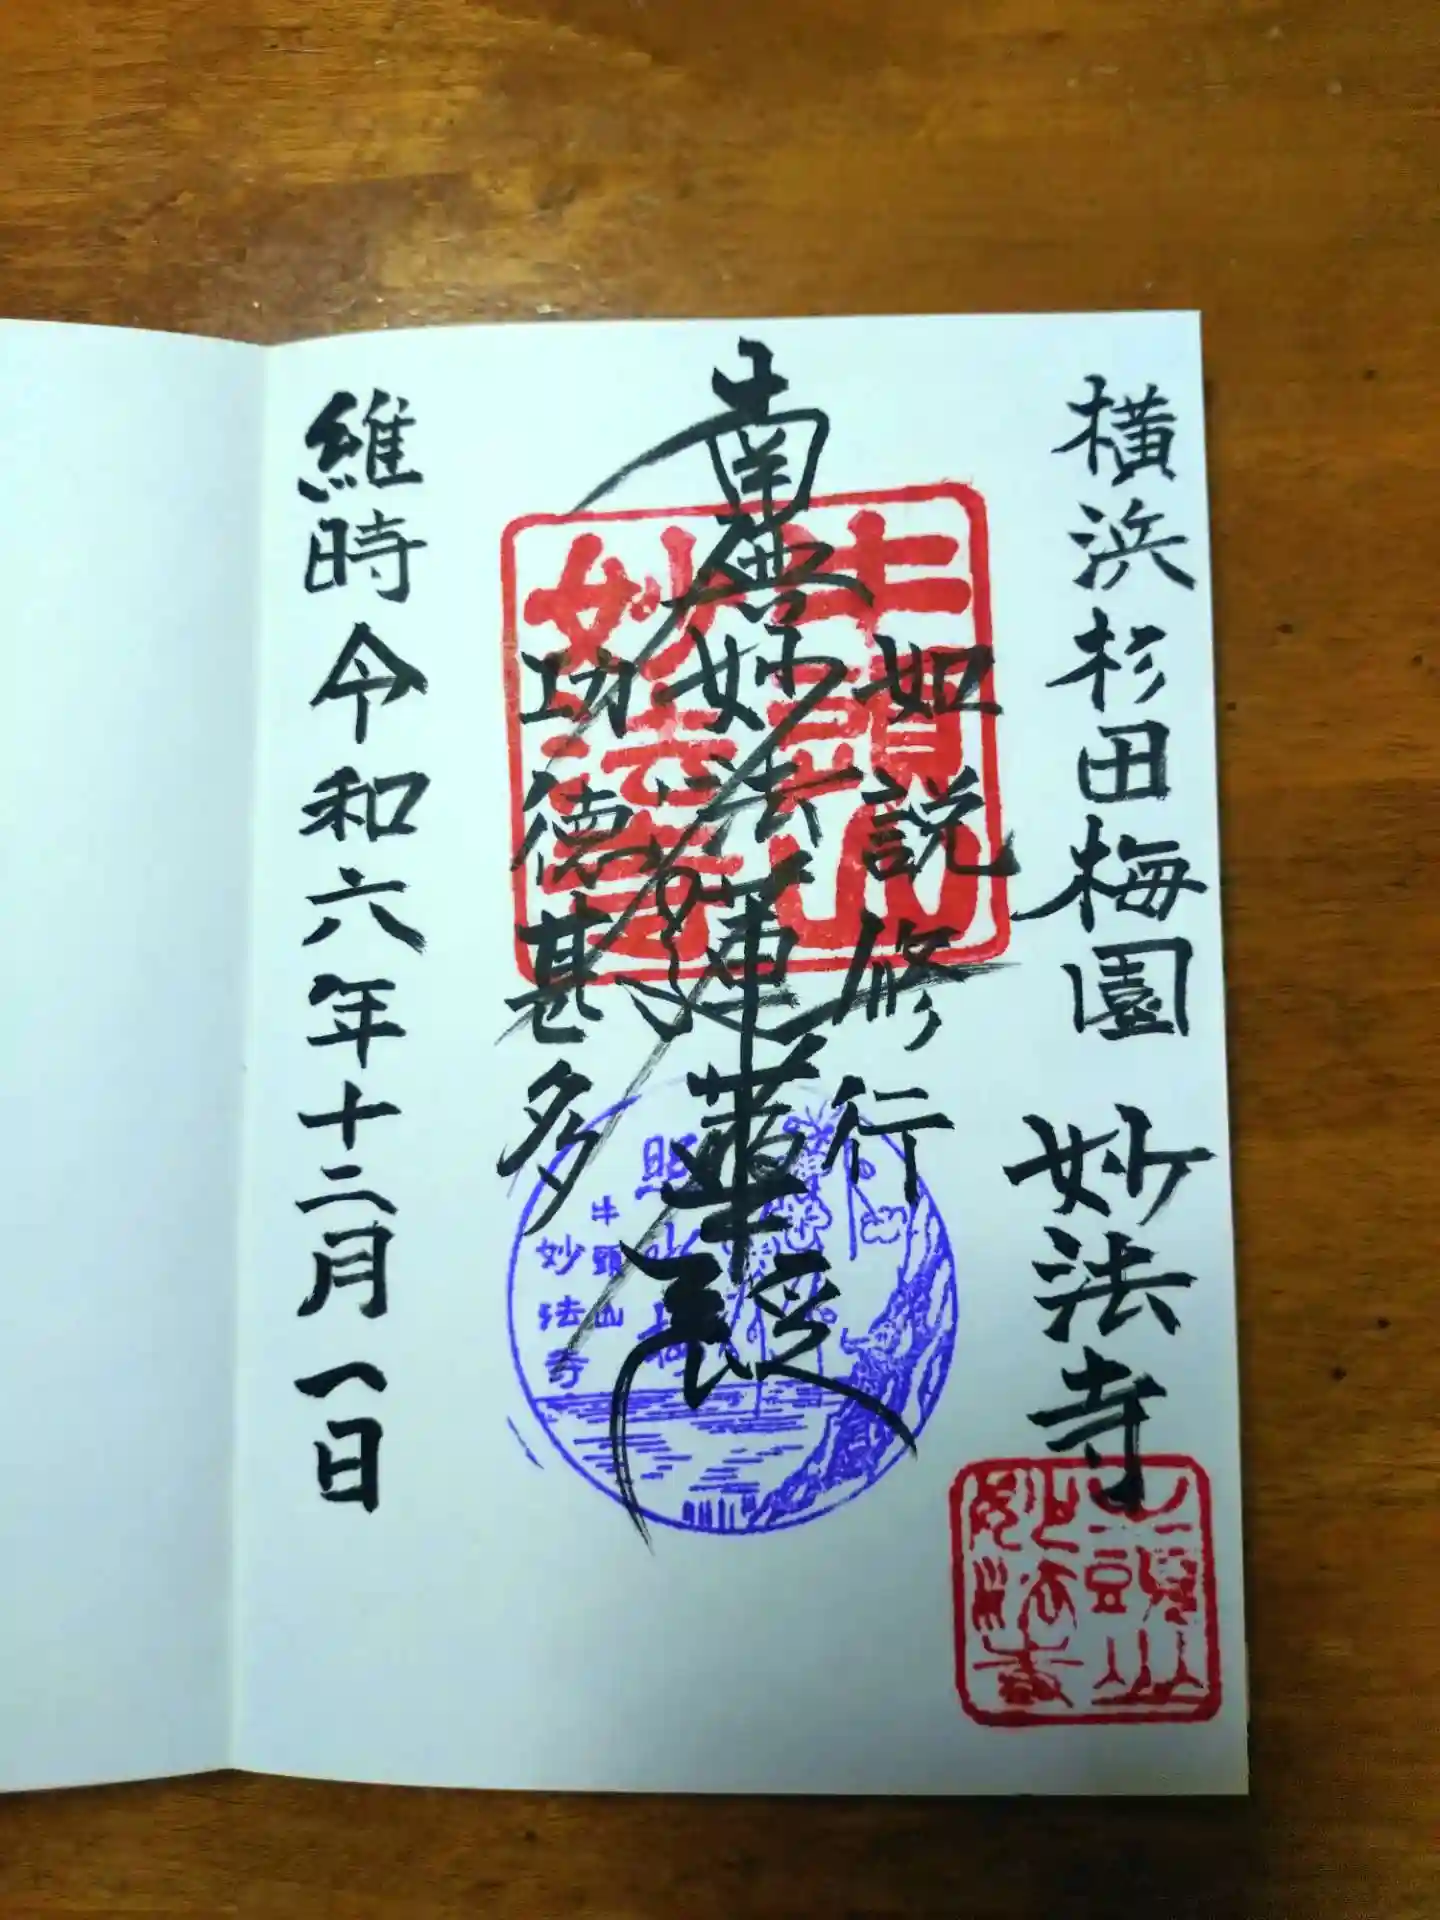 横浜杉田梅園 妙法寺
如説修行
南無妙法蓮華経
功徳甚多
維時令和六年十二月一日
牛頭山
妙法寺
照水梅
牛頭山
妙法寺
牛頭山
妙法寺